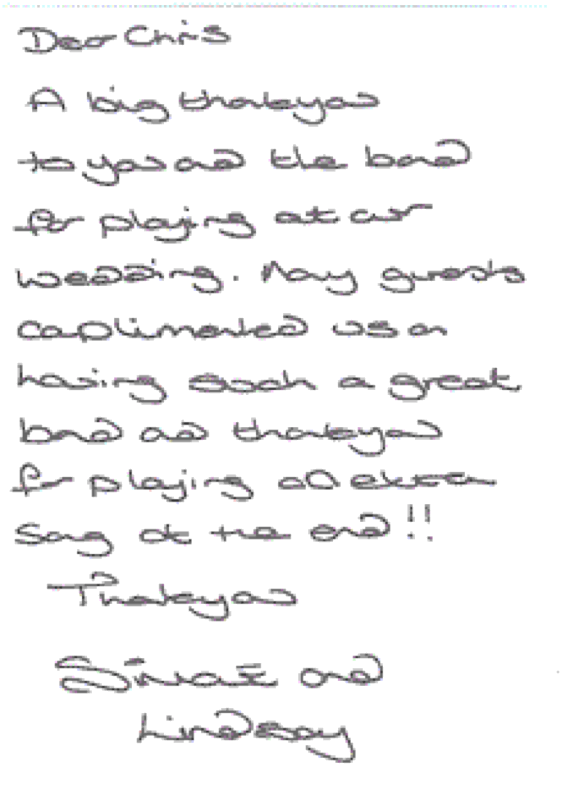 Dear Chris
A big thankyou
to you and the band
for playing at our
wedding. Many guests
complimented us on
having such a great
band and thankyou
for playing an extra
song at the end!!
Thankyou
and
Lindsay